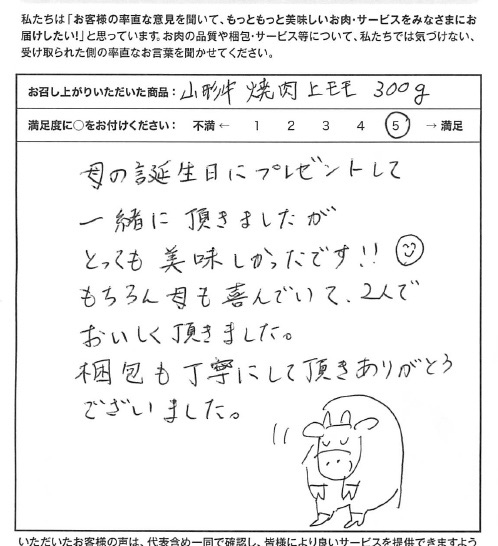 私たちは「お客様の率直な意見を聞いて、もっともっと美味しいお肉・サービスをみなさまにお
届けしたい!」と思っています。お肉の品質や梱包・サービス等について、私たちでは気づけない、
受け取られた側の率直なお言葉を聞かせてください。
お召し上がりいただいた商品: 山形牛 焼肉上モモ 300g
満足度に○をお付けください: 不満 ← 1 2 3 4 5 → 満足
母の誕生日にプレゼントして
一緒に頂きましたが
とっても美味しかったです!!
もちろん母も喜んでいて、2人で
おいしく頂きました。
梱包も丁寧にして頂きありがとう
ございました。
いただいたお客様の声は、代表含め一同で確認し、皆様により良いサービスを提供できますよう